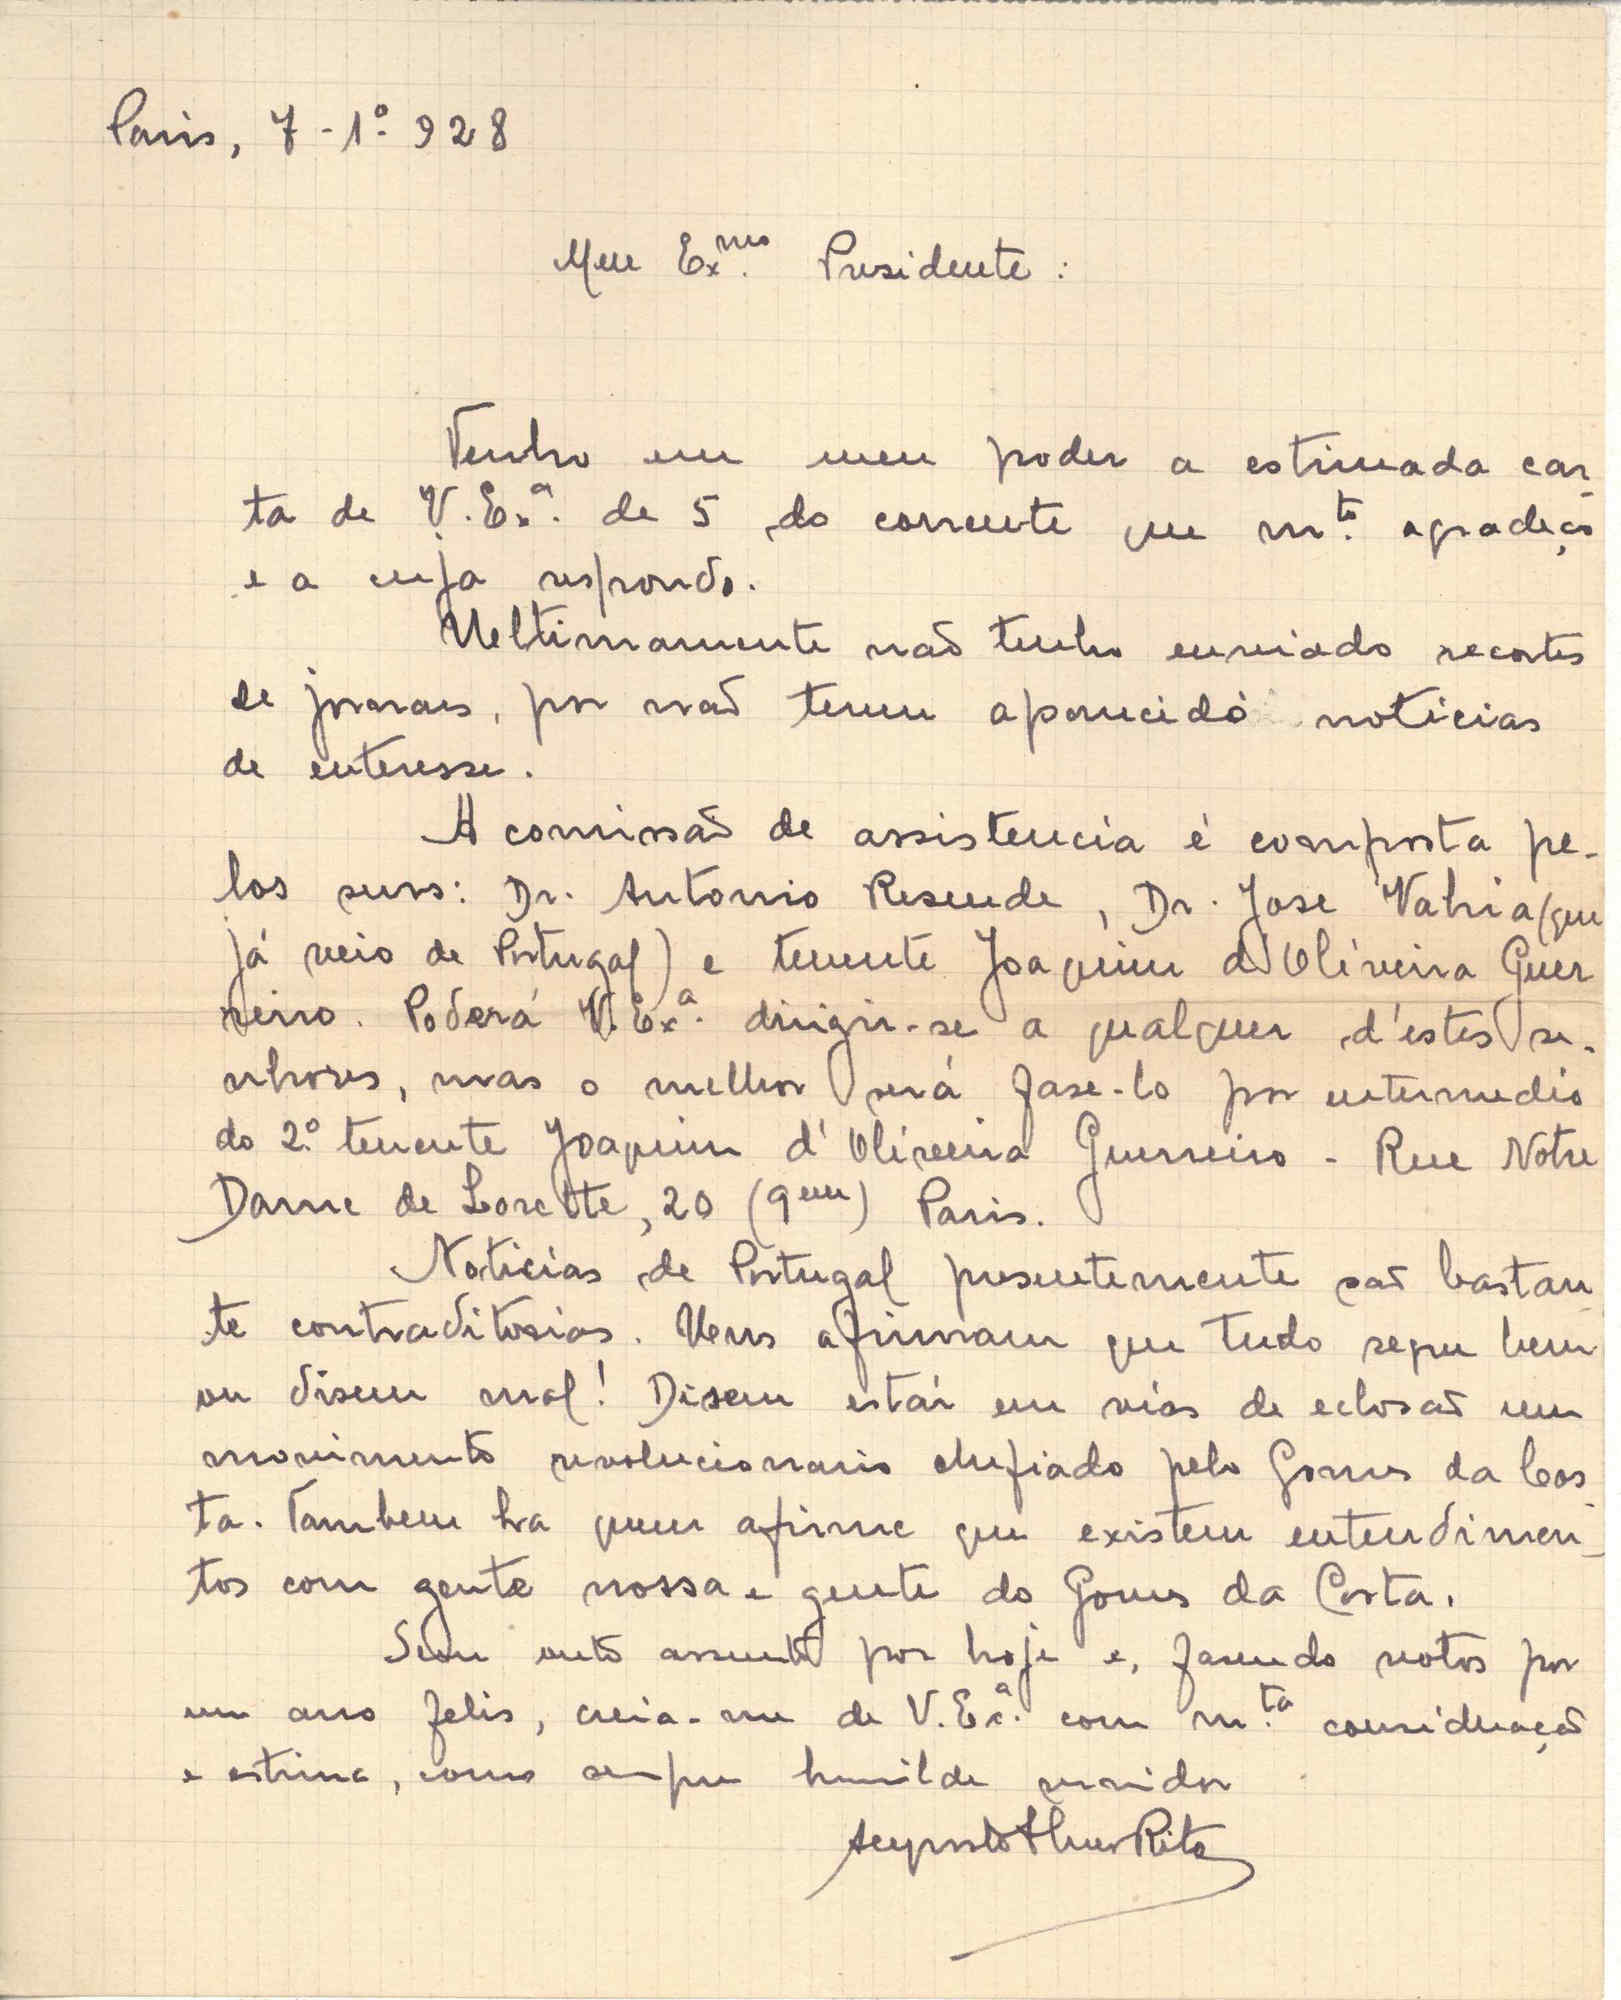 Paris, 7-1º-928
Meu Ex.mo Presidente:
Tenho em meu poder a estimada car-
ta de V. Ex.ª de 5 do corrente que m.to agradeço
e a cuja respondo.
Ultimamente não tenho enviado recortes
de jornais, por não terem aparecido noticias
de enteresse.
A comissão de assistencia é composta pe-
los snrs: Dr. Antonio Resende, Dr. Jose Vahia (que
já veio de Portugal) e tenente Joaquim d'Oliveira Guer
reiro. Poderá V. Ex.ª dirigir-se a qualquer d'estes se-
nhores, mas o melhor será fase-lo por entermedio
do 2º tenente Joaquim d'Oliveira Guerreiro - Rue Notre
Dame de Lorette, 20 (9eme) Paris.
Noticias de Portugal presentemente são bastan
te contraditorias. Uns afirmam que tudo segue bem
ou disem mal! Disem estár em vias de eclosão um
movimento revolucionario chefiado pelo Gomes da Cos
ta. Tambem ha quem afirme que existem entendimen-
tos com gente nossa e gente do Gomes da Costa.
Sem outro assunto por hoje e, fasendo votos por
um ano felis, creia-me de V. Ex.ª com m.ta consideração
e estima, como sempre humilde servidor
Augusto Rita